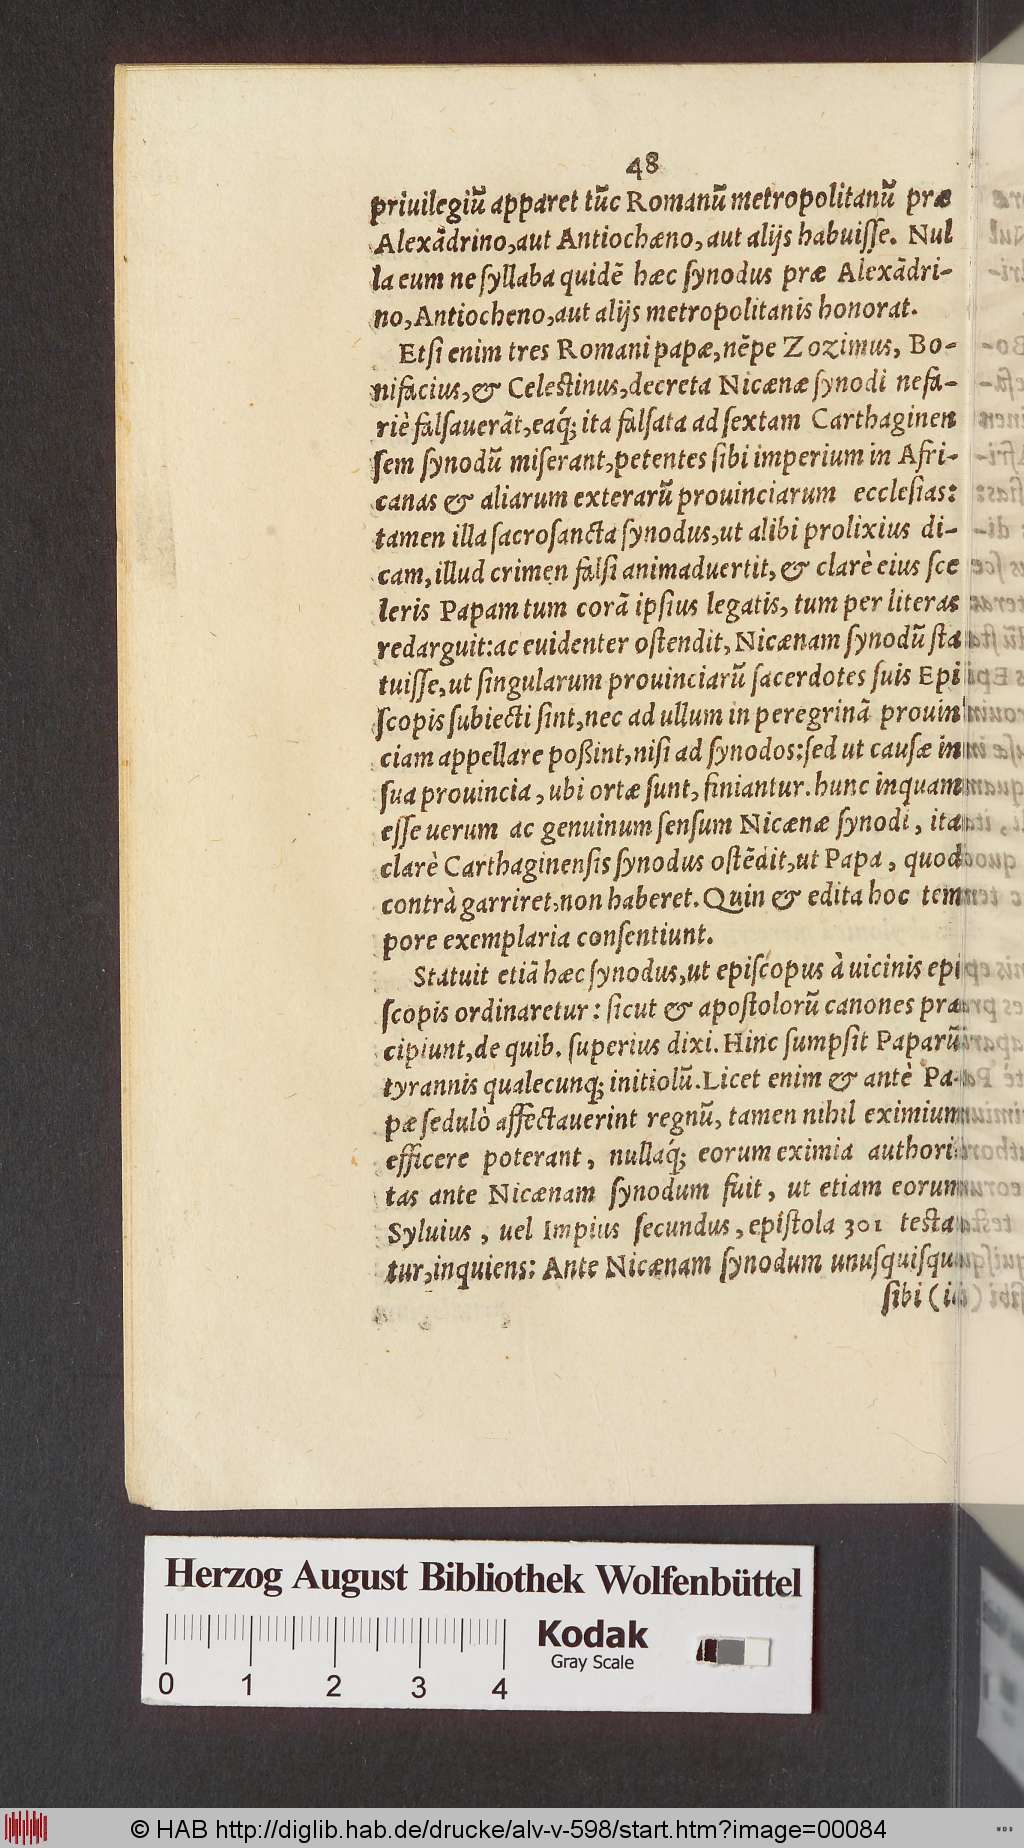 48
priuilegiũ apparet tũc Romanũ metropolitanũ præ
Alexãdrino, aut Antiochæno, aut alijs habuiſſe. Nul
la eum ne ſyllaba quidẽ hæc ſynodus præ Alexãdri-
no, Antiocheno, aut alijs metropolitanis honorat.
Etſi enim tres Romani papæ, nẽpe Zozimus, Bo-
nifacius, & Celeſtinus, decreta Nicænæ ſynodi nefa-
riè falſauerãt, eaq́; ita falſata ad ſextam Carthaginen
ſem ſynodũ miſerant, petentes ſibi imperium in Afri-
canas & aliarum exterarũ prouinciarum eccleſias:
tamen illa ſacroſancta ſynodus, ut alibi prolixius di-
cam, illud crimen falſi animaduertit, & clarè eius ſce
leris Papam tum corã ipſius legatis, tum per literas
redarguit: ac euidenter oſtendit, Nicænam ſynodũ ſta
tuiſſe, ut ſingularum prouinciarũ ſacerdotes ſuis Epi
ſcopis ſubiecti ſint, nec ad ullum in peregrinã prouin
ciam appellare poßint, niſi ad ſynodos: ſed ut cauſæ in
ſua prouincia, ubi ortæ ſunt, finiantur. hunc inquam
eſſe uerum ac genuinum ſenſum Nicænæ ſynodi, ita
clarè Carthaginenſis ſynodus oſtẽdit, ut Papa, quod
contrà garriret, non haberet. Quin & edita hoc tem
pore exemplaria conſentiunt.
Statuit etiã hæc ſynodus, ut epiſcopus à uicinis epi
ſcopis ordinaretur: ſicut & apoſtolorũ canones præ
cipiunt, de quib. ſuperius dixi. Hinc ſumpſit Paparũ
tyrannis qualecunq; initiolũ. Licet enim & antè Pa-
pæ ſedulò affectauerint regnũ, tamen nihil eximium
efficere poterant, nullaq́; eorum eximia authori
tas ante Nicænam ſynodum fuit, ut etiam eorum
Syluius, uel Impius ſecundus, epiſtola 301 teſta
tur, inquiens: Ante Nicænam ſynodum unuſquiſqu
ſibi (id
Herzog August Bibliothek Wolfenbüttel
Kodak
Gray Scale
0 1 2 3 4
© HAB http://diglib.hab.de/drucke/alv-v-598/start.htm?image=00084